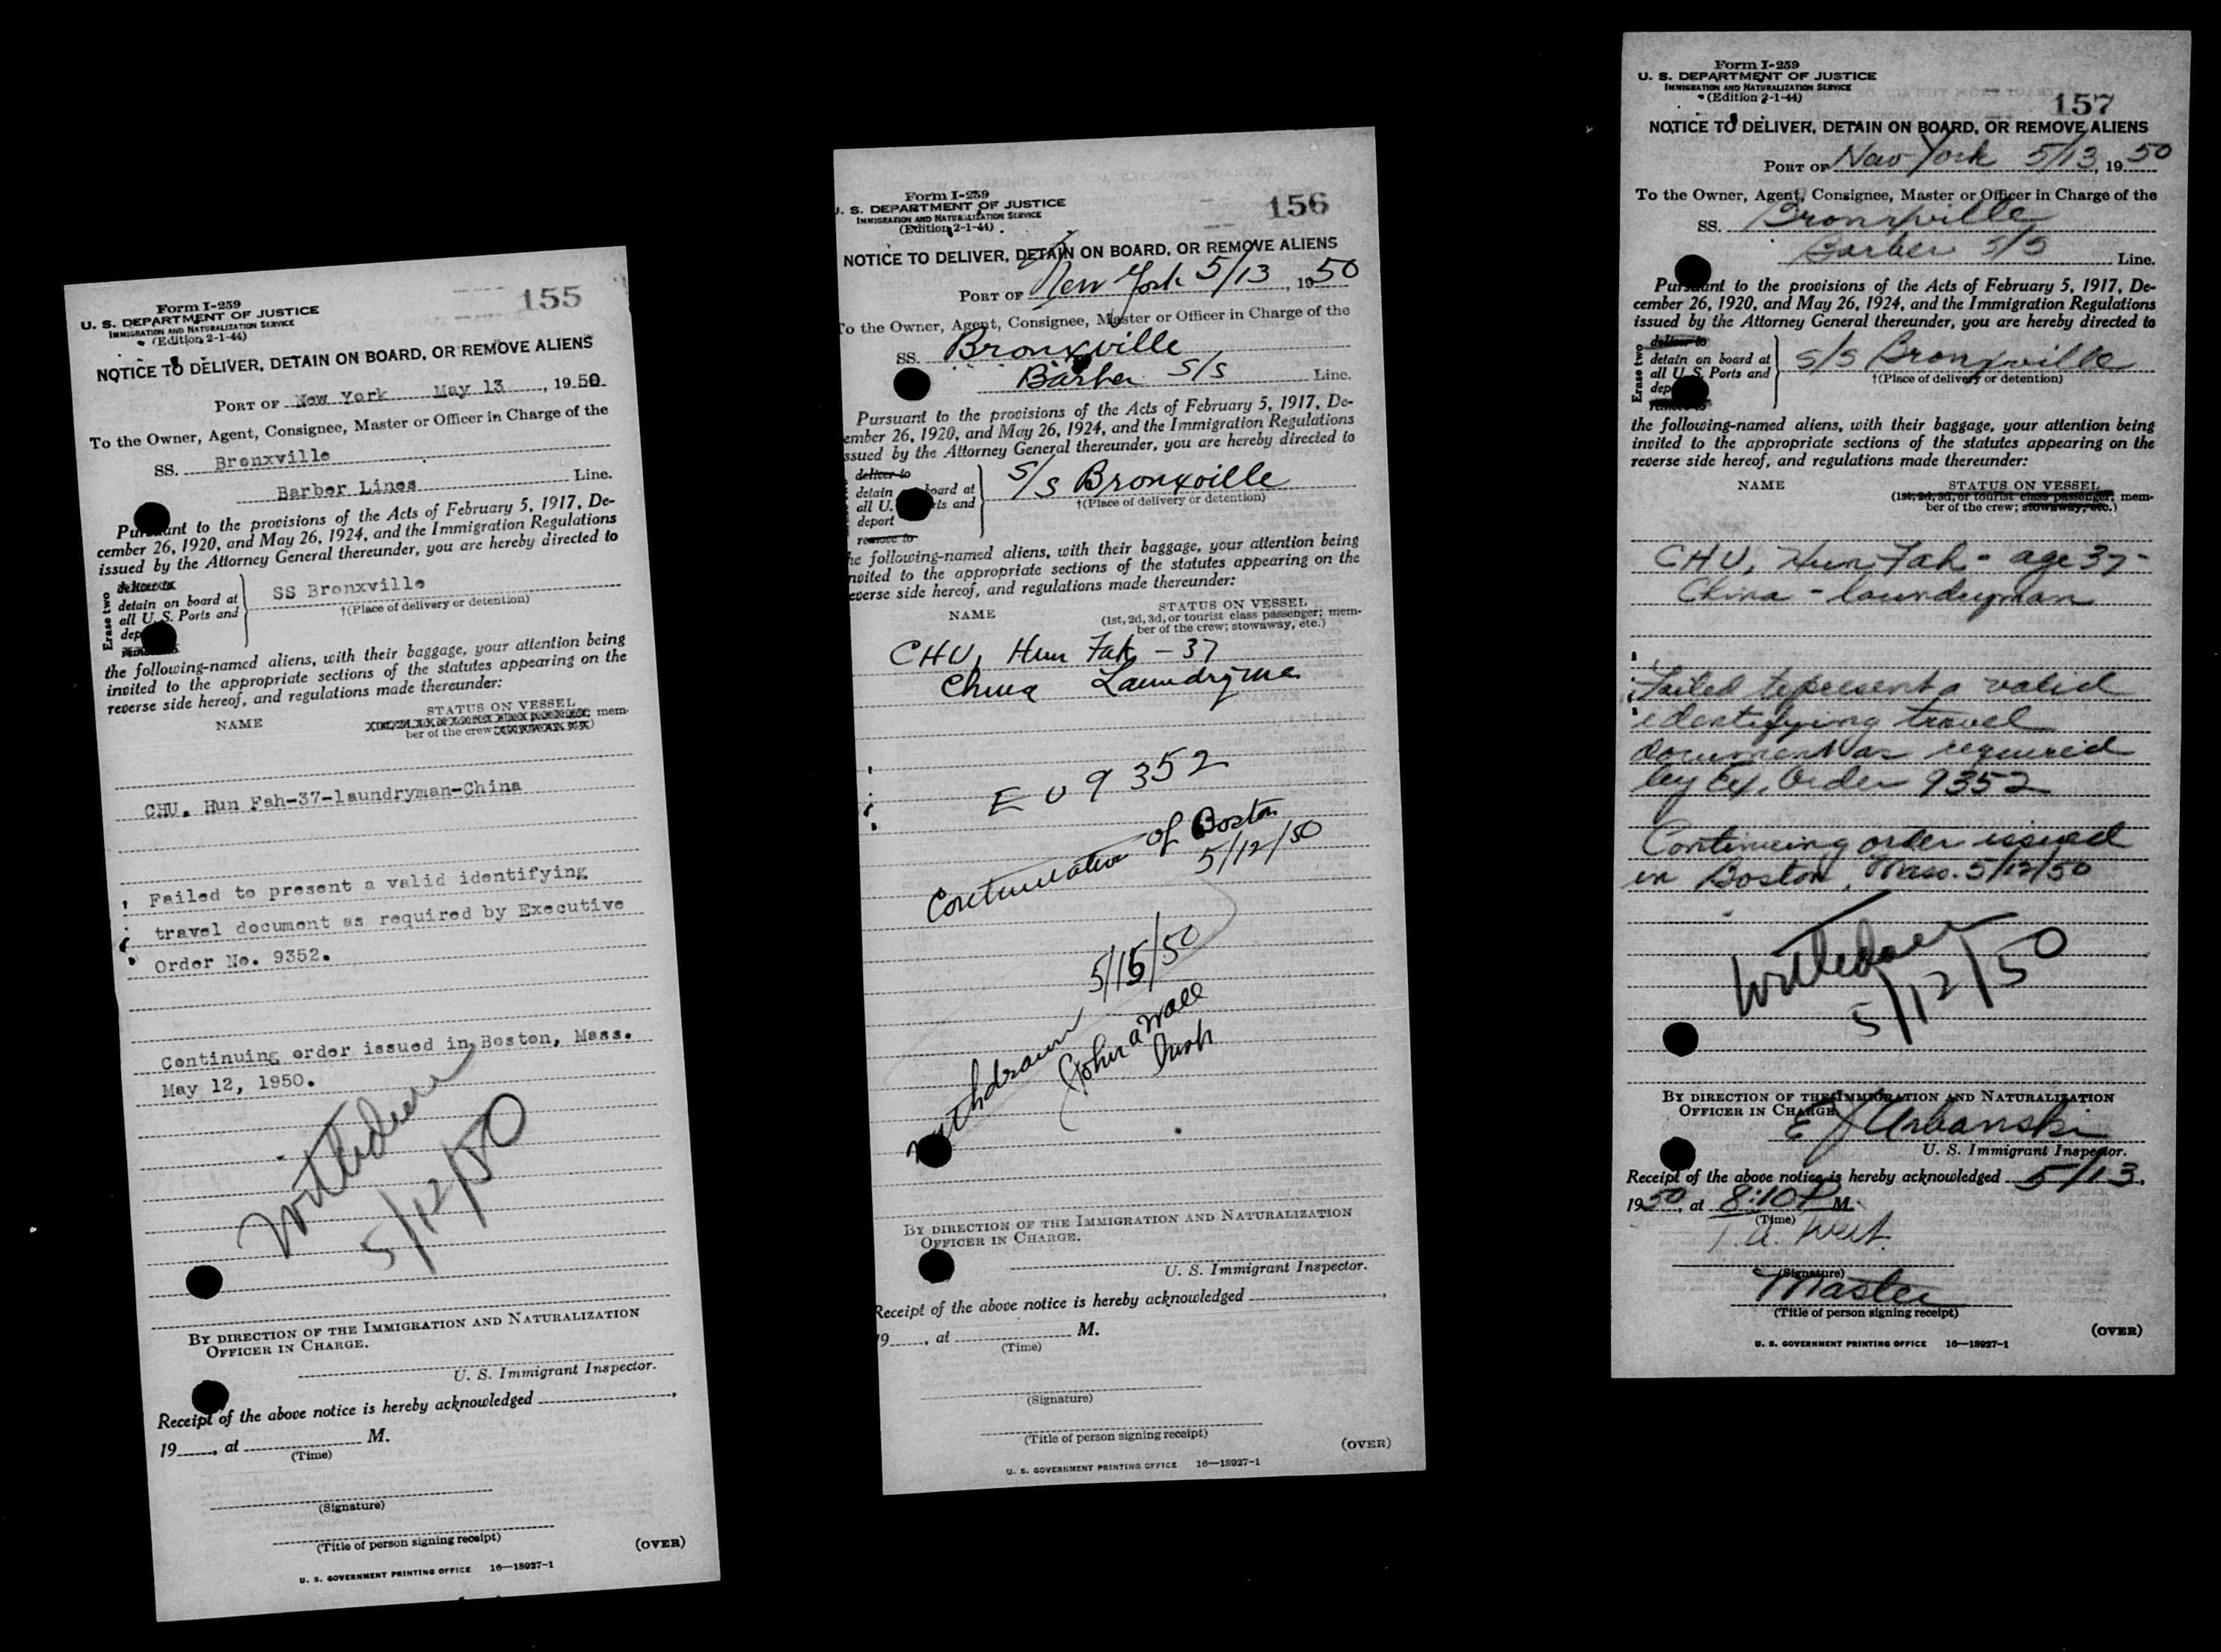 Form I-259
U. S. DEPARTMENT OF JUSTICE
IMMIGRATION AND NATURALIZATION SERVICE
(Edition 2-1-44)
155
NOTICE TO DELIVER, DETAIN ON BOARD, OR REMOVE ALIENS
PORT OF New York May 13, 1950
To the Owner, Agent, Consignee, Master or Officer in Charge of the
SS. Bronxville
Barber Lines Line.
Pursuant to the provisions of the Acts of February 5, 1917, De-
cember 26, 1920, and May 26, 1924, and the Immigration Regulations
issued by the Attorney General thereunder, you are hereby directed to
Erase two
deliver to
detain on board at
all U. S. Ports and
dep
remove to
SS Bronxville
†(Place of delivery or detention)
the following-named aliens, with their baggage, your attention being
invited to the appropriate sections of the statutes appearing on the
reverse side hereof, and regulations made thereunder:
NAME STATUS ON VESSEL
mem-
ber of the crew
CHU, Hun Fah-37-laundryman-China
Failed to present a valid identifying
travel document as required by Executive
Order No. 9352.
Continuing order issued in Boston, Mass.
May 12, 1950.
Withdrawn
5/12/50
BY DIRECTION OF THE IMMIGRATION AND NATURALIZATION
OFFICER IN CHARGE.
U. S. Immigrant Inspector.
Receipt of the above notice is hereby acknowledged ,
19 , at M.
(Time)
(Signature)
(Title of person signing receipt)
(OVER)
U. S. GOVERNMENT PRINTING OFFICE 16—18927-1
Form I-259
U. S. DEPARTMENT OF JUSTICE
IMMIGRATION AND NATURALIZATION SERVICE
(Edition 2-1-44)
156
NOTICE TO DELIVER, DETAIN ON BOARD, OR REMOVE ALIENS
PORT OF New York 5/13, 1950
To the Owner, Agent, Consignee, Master or Officer in Charge of the
SS. Bronxville
Barber S/S Line.
Pursuant to the provisions of the Acts of February 5, 1917, De-
ember 26, 1920, and May 26, 1924, and the Immigration Regulations
ssued by the Attorney General thereunder, you are hereby directed to
deliver to
detain board at
all U. ts and
deport
remove to
S/S Bronxville
†(Place of delivery or detention)
he following-named aliens, with their baggage, your attention being
nvited to the appropriate sections of the statutes appearing on the
everse side hereof, and regulations made thereunder:
NAME STATUS ON VESSEL
(1st, 2d, 3d, or tourist class passenger; mem-
ber of the crew; stowaway, etc.)
CHU, Hun Fah - 37
China Laundryman
EO 9352
Continuation of Boston
5/12/50
Withdrawn 5/15/50
John A Wall
BY DIRECTION OF THE IMMIGRATION AND NATURALIZATION
OFFICER IN CHARGE.
U. S. Immigrant Inspector.
Receipt of the above notice is hereby acknowledged ,
19 , at M.
(Time)
(Signature)
(Title of person signing receipt)
(OVER)
U. S. GOVERNMENT PRINTING OFFICE 16—18927-1
Form I-259
U. S. DEPARTMENT OF JUSTICE
IMMIGRATION AND NATURALIZATION SERVICE
(Edition 2-1-44)
157
NOTICE TO DELIVER, DETAIN ON BOARD, OR REMOVE ALIENS
PORT OF New York 5/13, 1950
To the Owner, Agent, Consignee, Master or Officer in Charge of the
SS. Bronxville
Barber S/S Line.
Pursuant to the provisions of the Acts of February 5, 1917, De-
cember 26, 1920, and May 26, 1924, and the Immigration Regulations
issued by the Attorney General thereunder, you are hereby directed to
Erase two
deliver to
detain on board at
all U. S. Ports and
dep
remove to
S/S Bronxville
†(Place of delivery or detention)
the following-named aliens, with their baggage, your attention being
invited to the appropriate sections of the statutes appearing on the
reverse side hereof, and regulations made thereunder:
NAME STATUS ON VESSEL
(1st, 2d, 3d, or tourist class passenger; mem-
ber of the crew; stowaway, etc.)
CHU, Hun Fah - age 37 -
China - laundryman
Failed to present a valid
identifying travel
document as required
by Ex. Order 9352
Continuing order issued
in Boston, Mass. 5/12/50
Withdrawn
5/12/50
BY DIRECTION OF THE IMMIGRATION AND NATURALIZATION
OFFICER IN CHARGE.
E J Urbanski
U. S. Immigrant Inspector.
Receipt of the above notice is hereby acknowledged 5/13,
1950, at 8:10 P M.
(Time)
T. A. West
(Signature)
Master
(Title of person signing receipt)
(OVER)
U. S. GOVERNMENT PRINTING OFFICE 16—18927-1